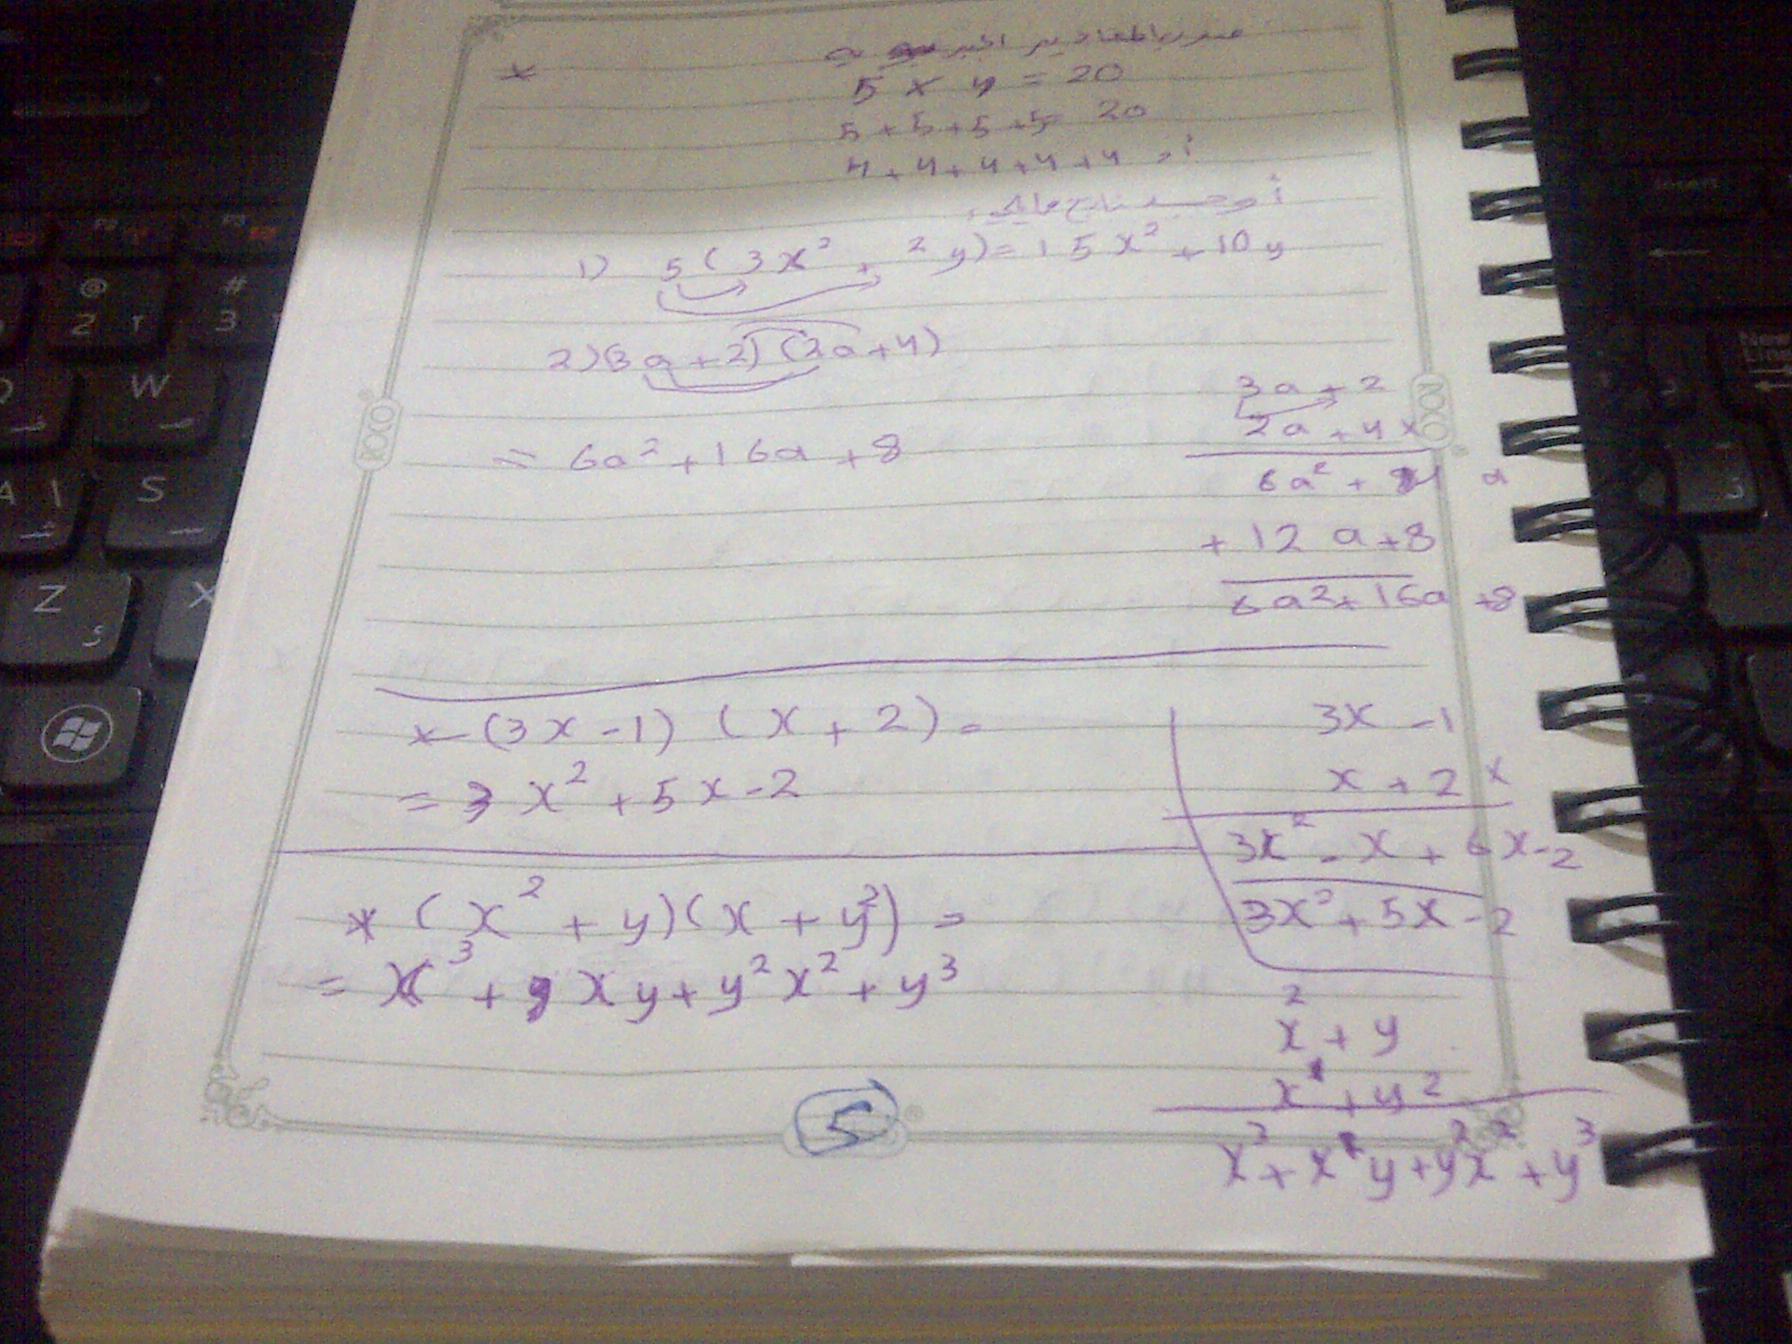 ضرب المقادير الجبرية
*
5 x 4 = 20
5 + 5 + 5 + 5 = 20
4 + 4 + 4 + 4 + 4
أوجد ناتج مايلي
1) 5 ( 3x² + 2y) = 15x² + 10y
2) (3a + 2) (2a + 4)
= 6a² + 16a + 8
3a + 2
2a + 4 x
6a² + 4 a
+ 12 a + 8
6a² + 16a + 8
* (3x - 1) (x + 2) =
= 3x² + 5x - 2
3x - 1
x + 2 x
3x² - x + 6x - 2
3x² + 5x - 2
* (x² + y)(x + y²) =
= x³ + xy + y²x² + y³
x² + y
x + y²
x³ + xy + y²x² + y³
5
100
100
F2
F3
@
2
#
3
W
A
S
Z
X
Insert
New
Line